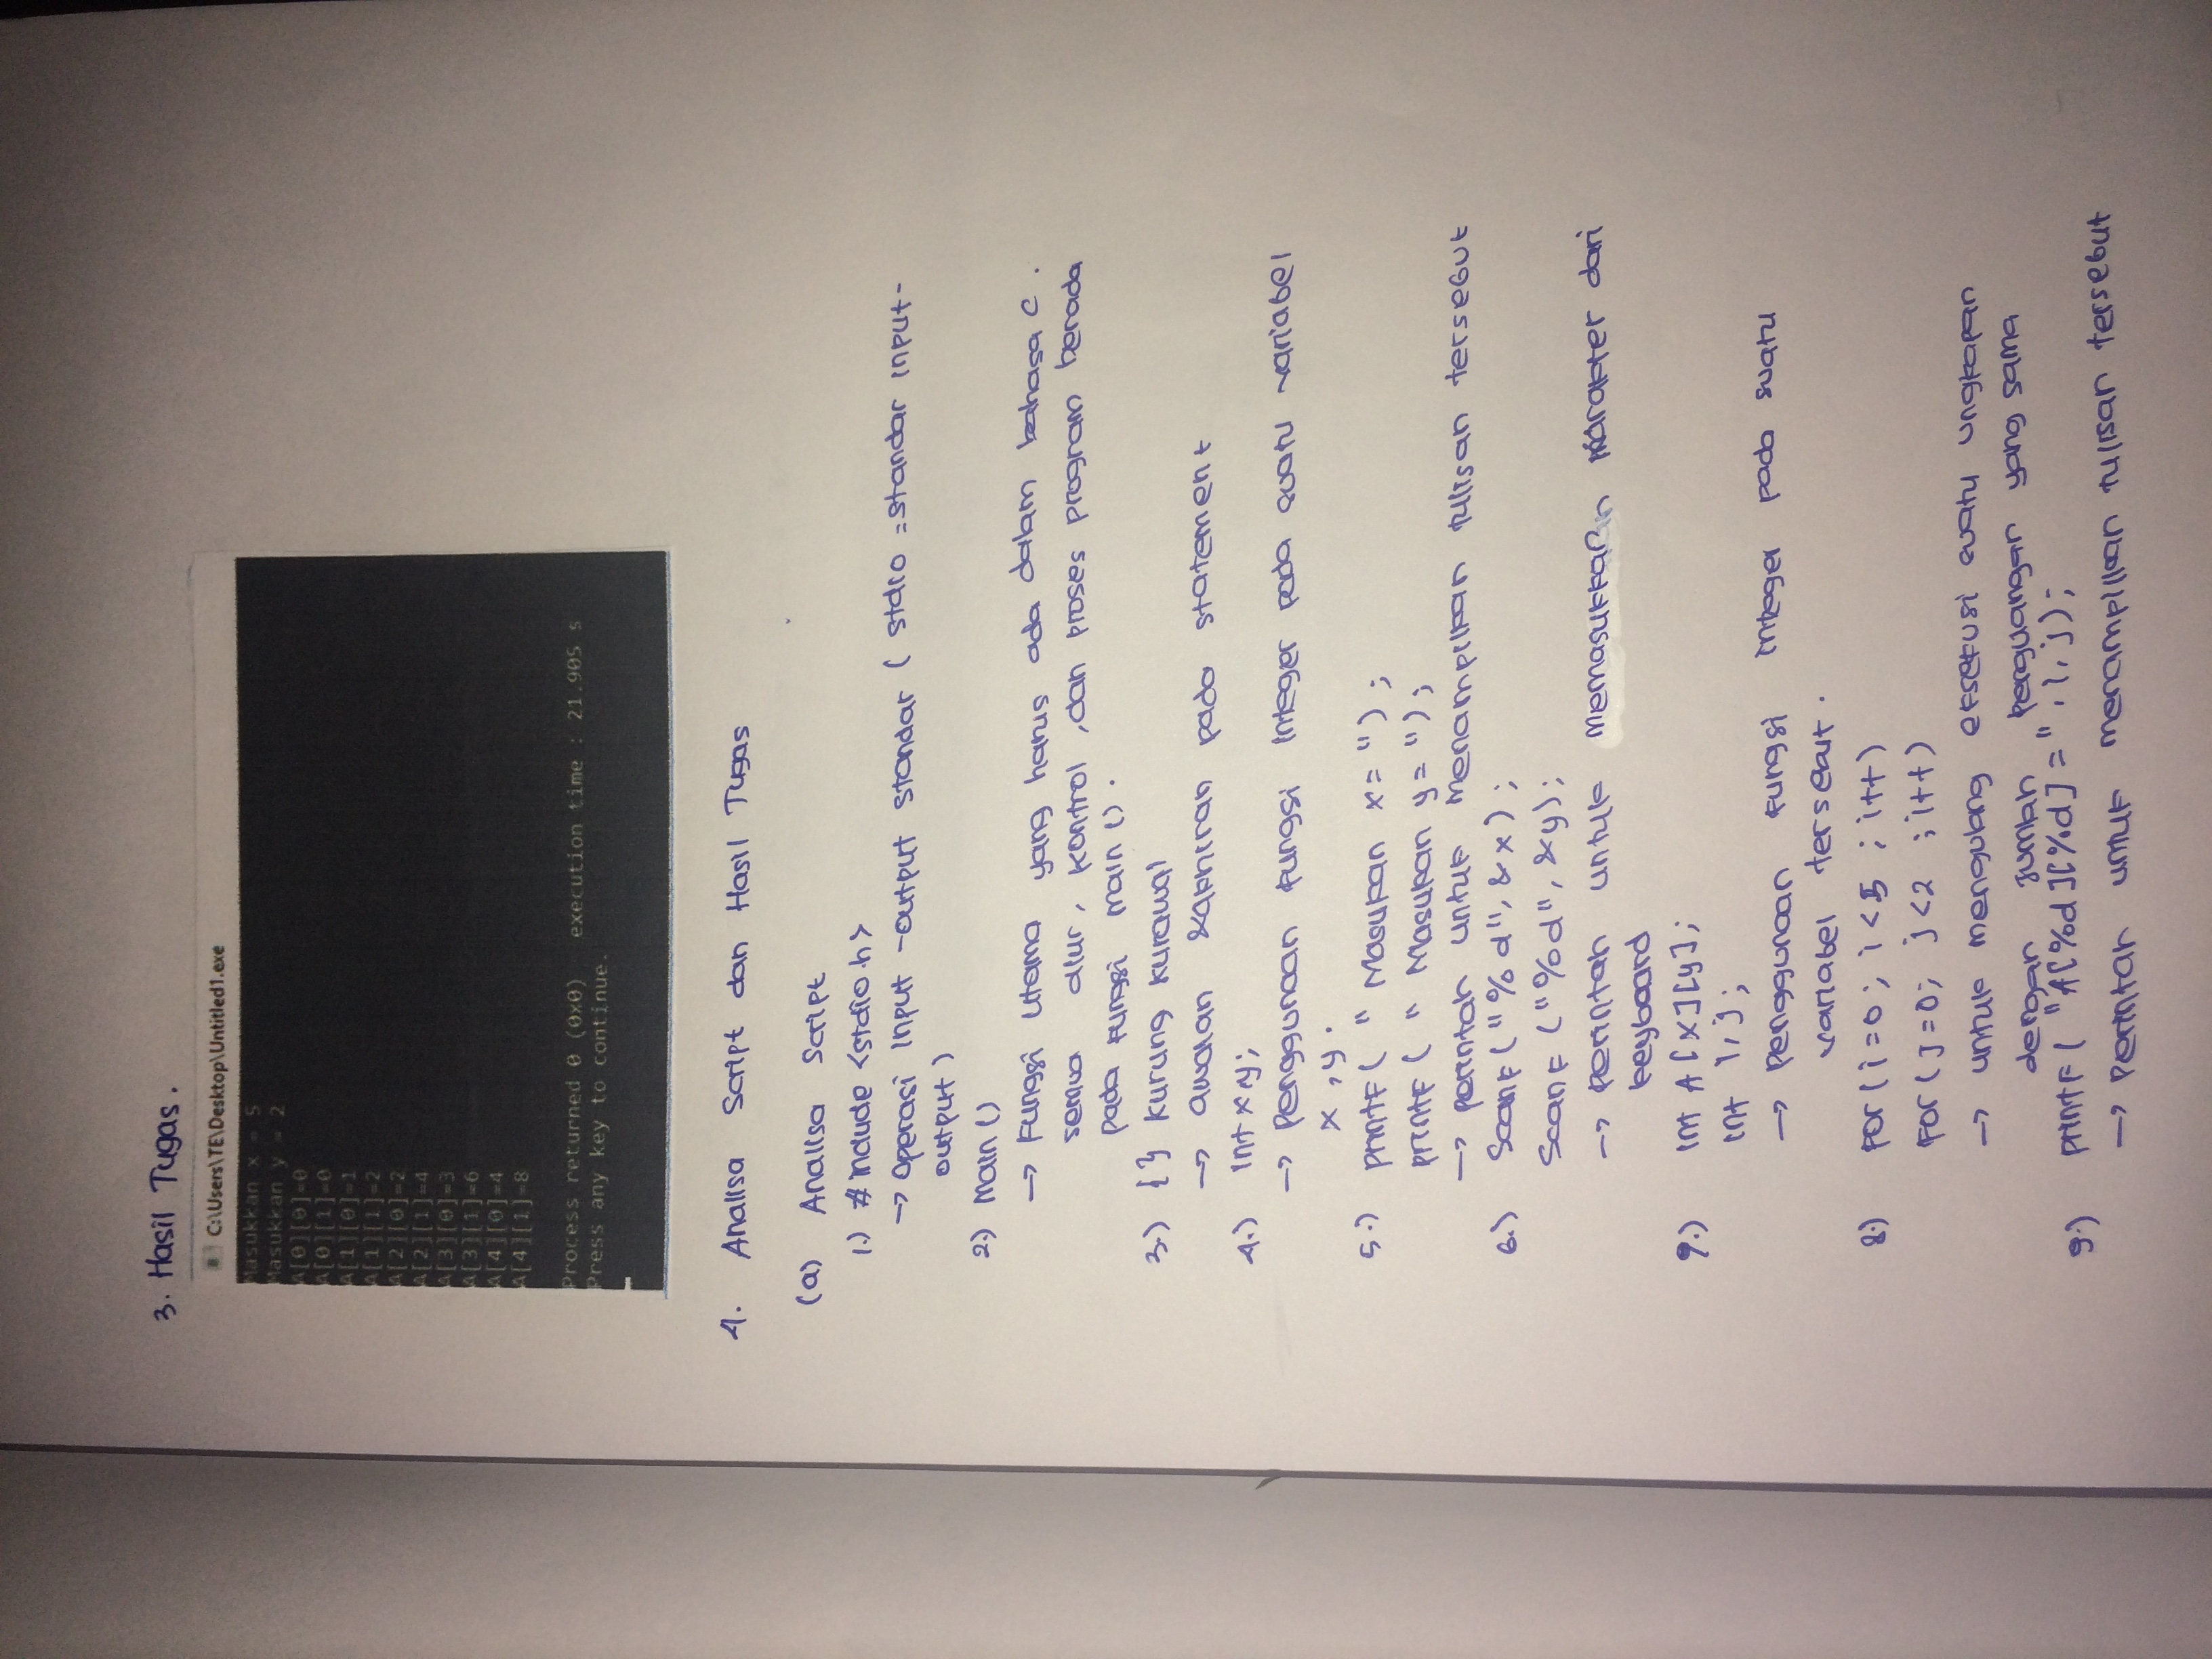 3. Hasil Tugas.
C:\Users\TE\Desktop\Untitled1.exe
Masukkan x = 5
Masukkan y = 2
A[0][0]=0
A[0][1]=0
A[1][0]=1
A[1][1]=2
A[2][0]=2
A[2][1]=4
A[3][0]=3
A[3][1]=6
A[4][0]=4
A[4][1]=8
Process returned 0 (0x0) execution time : 21.905 s
Press any key to continue.
4. Analisa Script dan Hasil Tugas
(a) Analisa Script
1.) #include <stdio.h>
→ Operasi Input -output standar ( stdio =standar input-
output )
2.) Main ()
→ Fungsi utama yang harus ada dalam bahasa C .
semua alur, kontrol ,dan proses program berada
pada fungsi main () .
3.) { } kurung kurawal
→ awalan & akhiran pada statement
4.) Int x,y;
→ Penggunaan fungsi Integer pada suatu variabel
x , y .
5.) printf ( " Masukan x = ") ;
printf ( " Masukan y = ") ;
→ perintah untuk menampilkan tulisan tersebut
6.) Scanf ( "%d", & x ) ;
Scanf ( "%d", & y) ;
→ perintah untuk memasukkan karakter dari
keyboard
7.) Int A [x][y];
Int i,j ;
→ Penggunaan fungsi integer pada suatu
variabel tersebut .
8.) For ( i = 0 ; i < 5 ; i++)
For ( j = 0; j < 2 ; i++)
→ untuk mengulang eksekusi suatu ungkapan
dengan jumlah pengulangan yang sama
9.) printf ( "A[%d][%d] = ", i , j ) ;
→ perintah untuk menampilkan tulisan tersebut